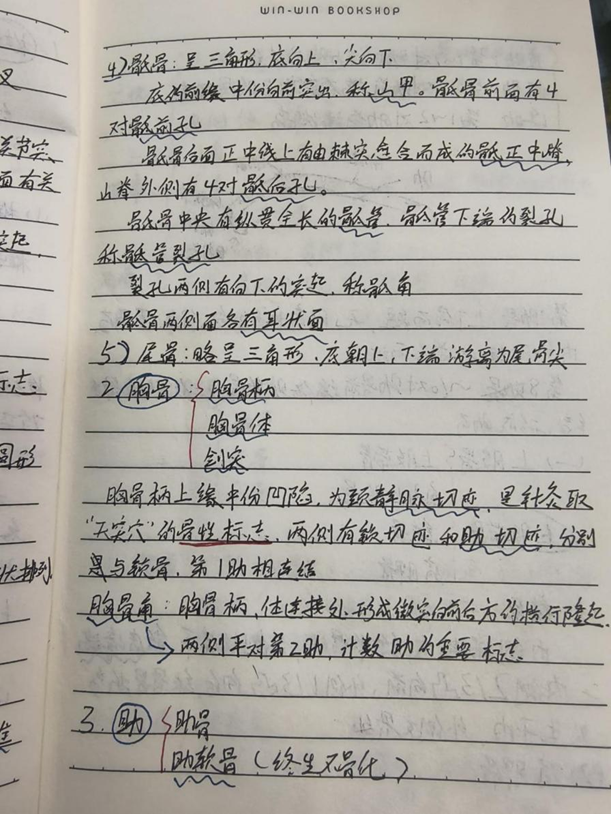 WIN-WIN BOOKSHOP
4)骶骨：呈三角形，底向上，尖向下
底的前缘中份向前突出，称山甲。骶骨前面有4
对骶前孔
骶骨后面正中线上有由棘突愈合而成的骶正中嵴，
山脊外侧有4对骶后孔。
骶骨中央有纵贯全长的骶管，骶管下端的裂孔
称骶管裂孔
裂孔两侧有向下的突起，称骶角
骶骨两侧面各有耳状面
5)尾骨：略呈三角形，底朝上，下端游离为尾骨尖
2.胸骨：胸骨柄
胸骨体
剑突
胸骨柄上缘中份凹陷，为颈静脉切迹，是针灸取
“天突穴”的骨性标志，两侧有锁切迹和肋切迹，分别
是与锁骨，第1肋相连结
胸骨角：胸骨柄，体连接处形成微突向前后方的横行隆起，
两侧平对第2肋，计数肋的重要标志
3.肋 肋骨
肋软骨（终生不骨化）
关节突、
面有关
突起
标志。
圆形
状排列